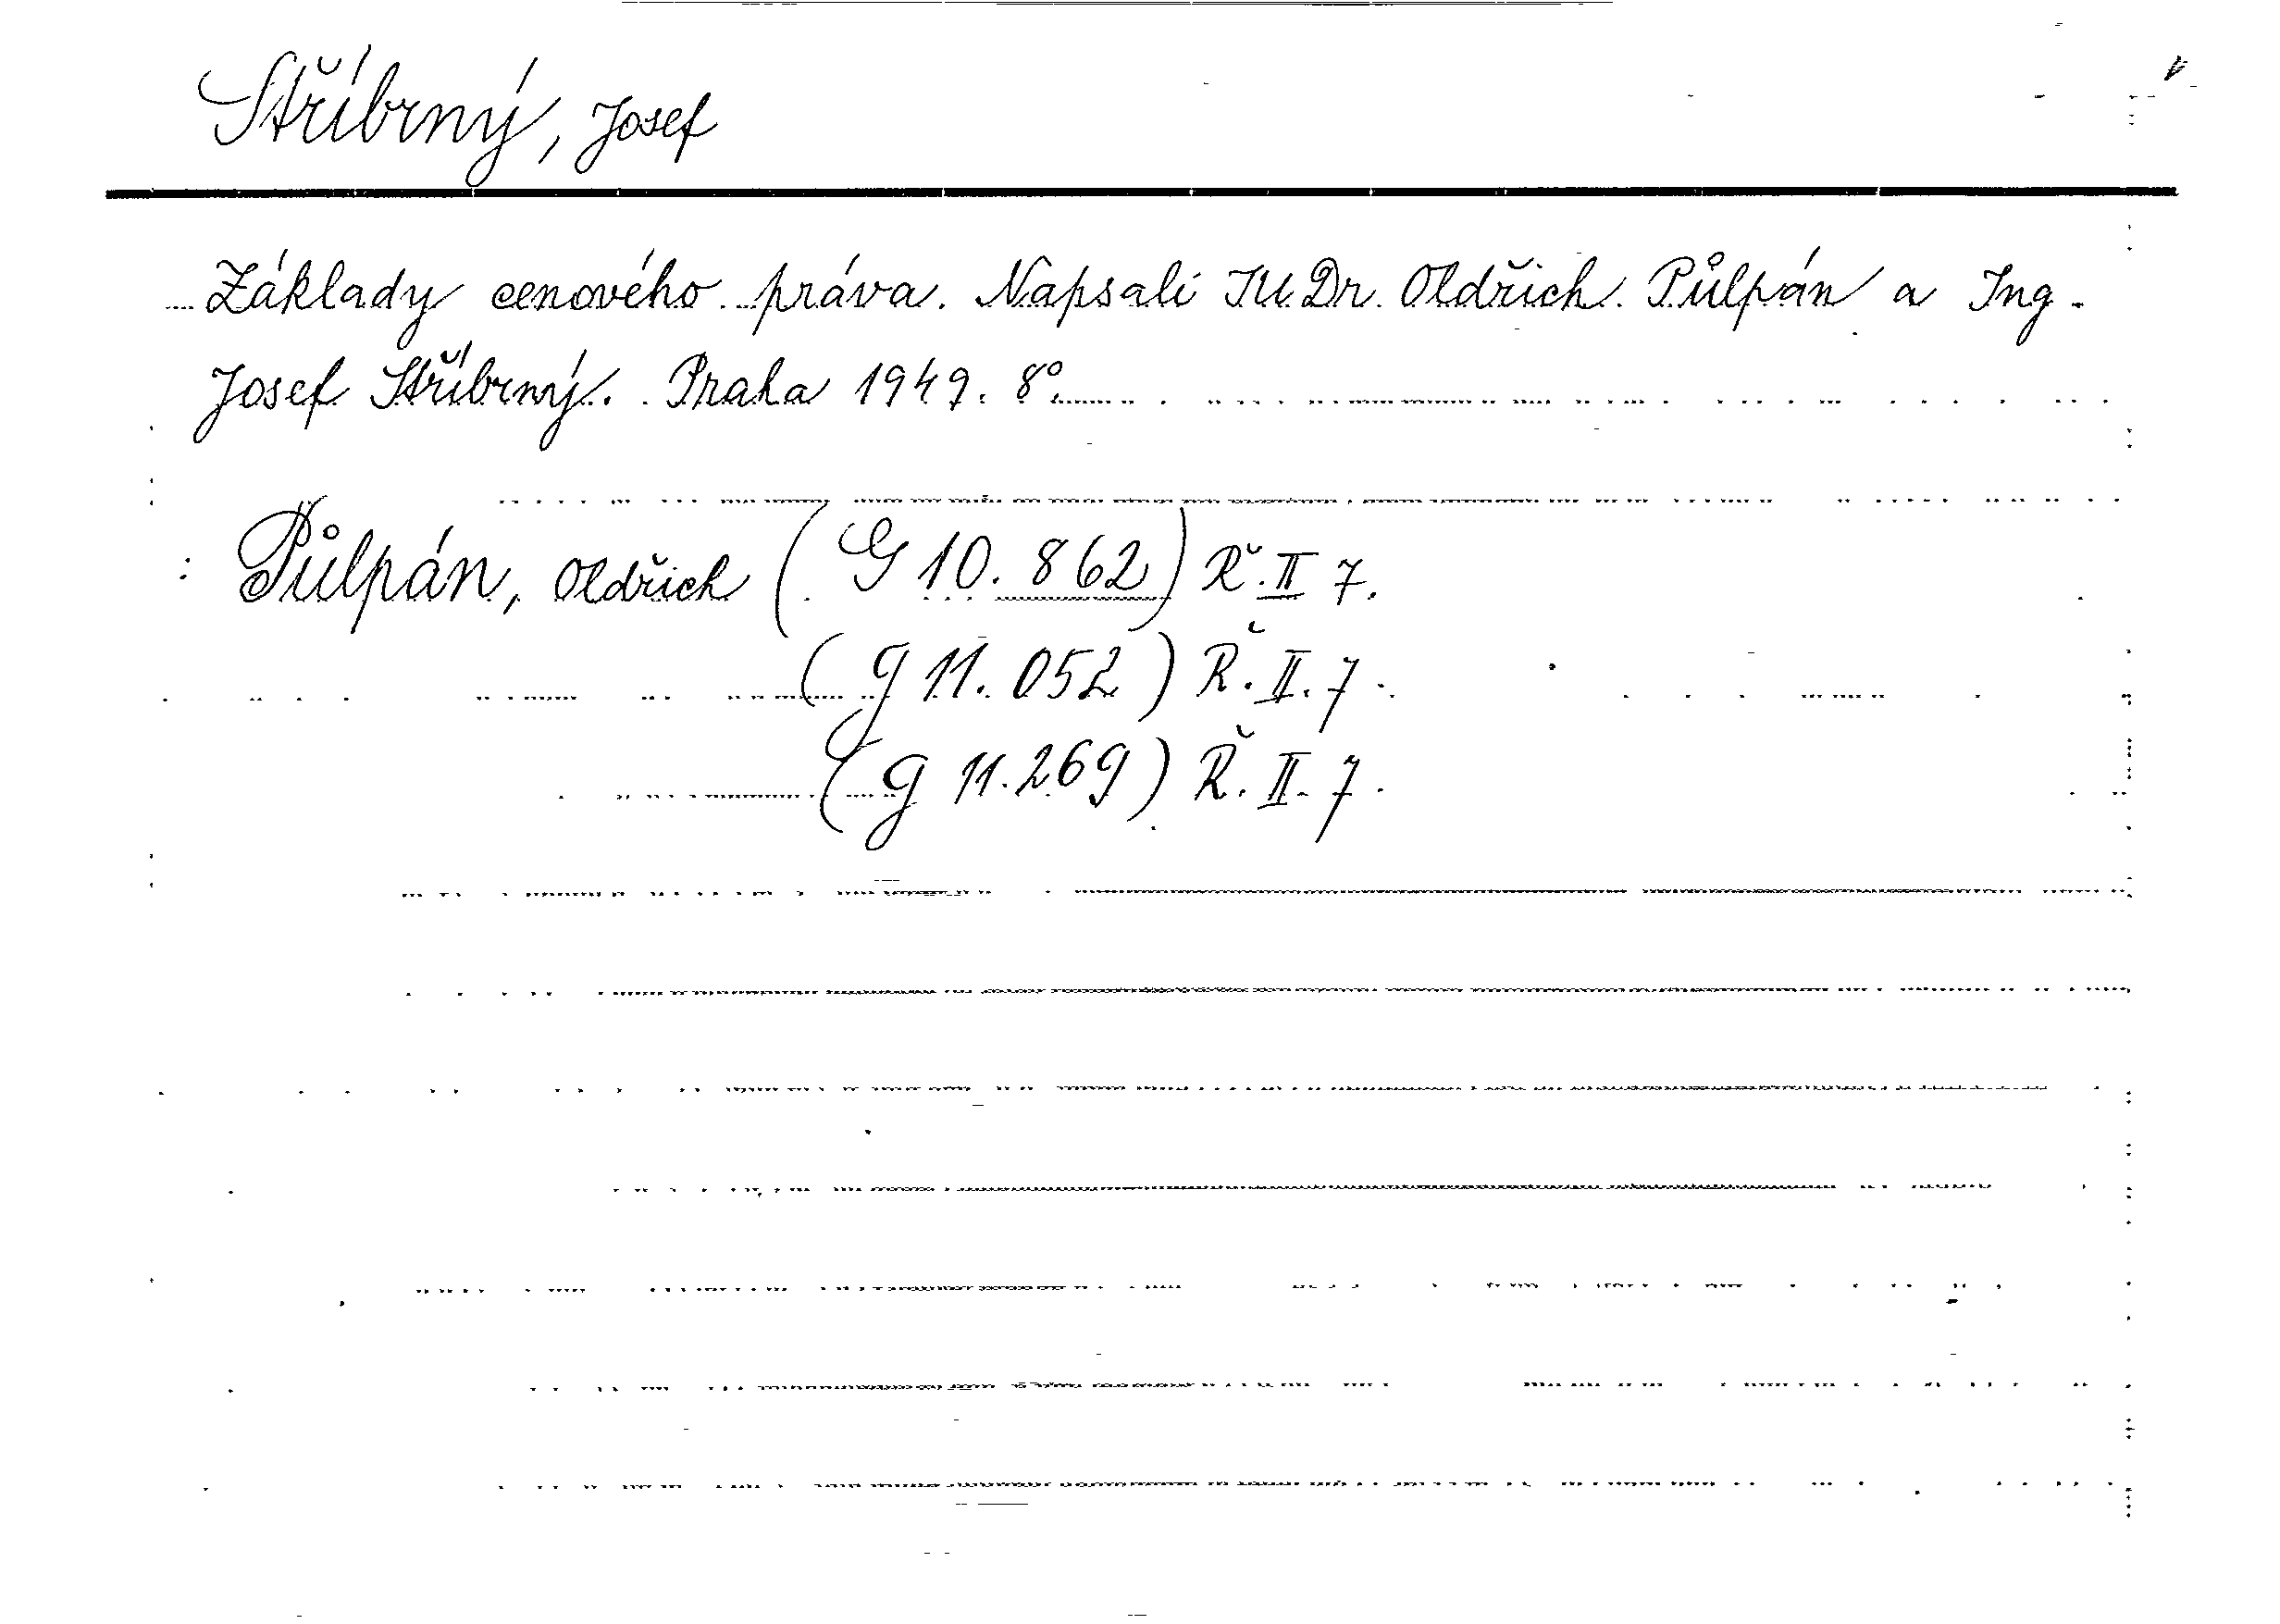 Stříbrný, Josef
Základy cenového práva. Napsali JU.Dr. Oldřich Půlpán a Ing.
Josef Stříbrný. Praha 1949. 8°.
Půlpán, Oldřich (G 10.862) Ř. II 7.
(g 11.052) Ř. II. 7.
(g 11.269) Ř. II. 7.